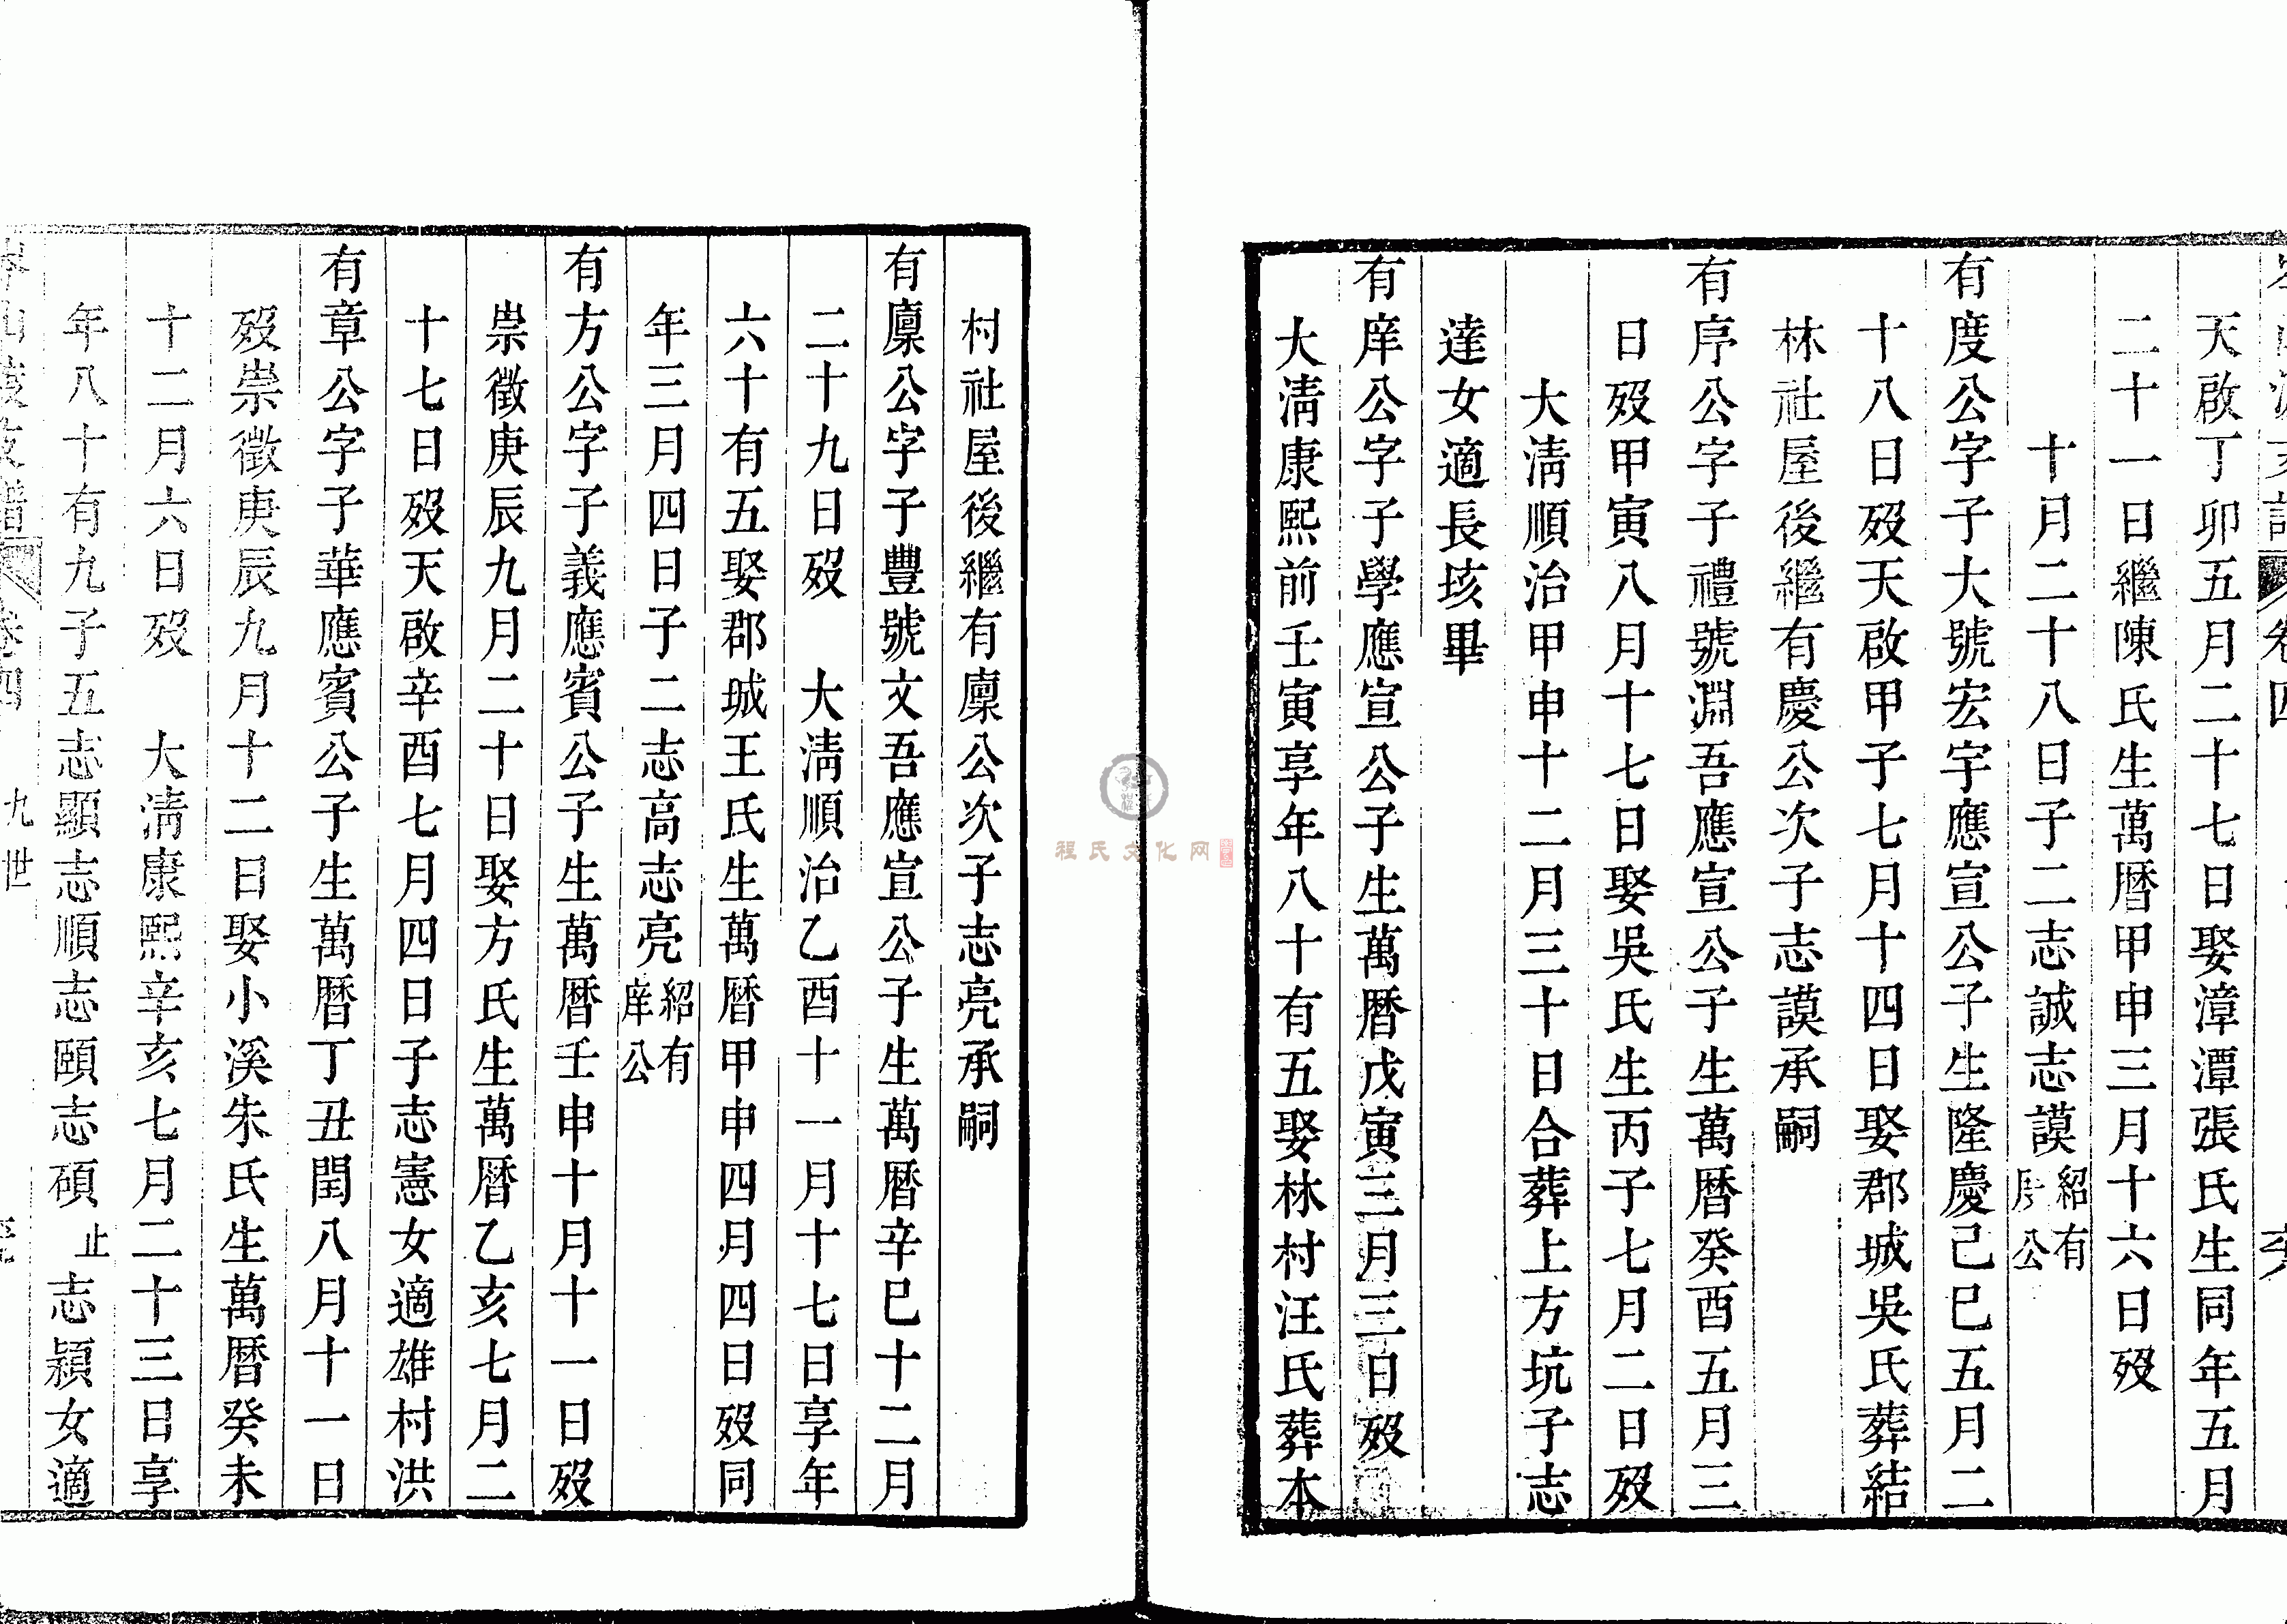 天啟丁卯五月二十七日娶漳潭張氏生同年五月
二十一日繼陳氏生萬曆甲申三月十六日歿
十月二十八日子二志誠志謨紹有序公
有度公字子大號宏宇應宣公子生隆慶己巳五月二
十八日歿天啟甲子七月十四日娶郡城吳氏葬結
林社屋後繼有慶公次子志謨承嗣
有序公字子禮號淵吾應宣公子生萬曆癸酉五月三
日歿甲寅八月十七日娶吳氏生丙子七月二日歿
大清順治甲申十二月三十日合葬上方坑子志
達女適長垓畢
有庠公字子學應宣公子生萬曆戊寅三月三日歿
大清康熙前壬寅享年八十有五娶林村汪氏葬本
村社屋後繼有廩公次子志亮承嗣
有廩公字子豐號文吾應宣公子生萬曆辛巳十二月
二十九日歿　大清順治乙酉十一月十七日享年
六十有五娶郡城王氏生萬曆甲申四月四日歿同
年三月四日子二志高志亮紹有庠公
有方公字子義應賓公子生萬曆壬申十月十一日歿
崇徵庚辰九月二十日娶方氏生萬曆乙亥七月二
十七日歿天啟辛酉七月四日子志憲女適雄村洪
有章公字子華應賓公子生萬曆丁丑閏八月十一日
歿崇徵庚辰九月十二日娶小溪朱氏生萬曆癸未
十二月六日歿　大清康熙辛亥七月二十三日享
年八十有九子五志顯志順志頤志碩止志潁女適
卷四　九世
程氏文化网